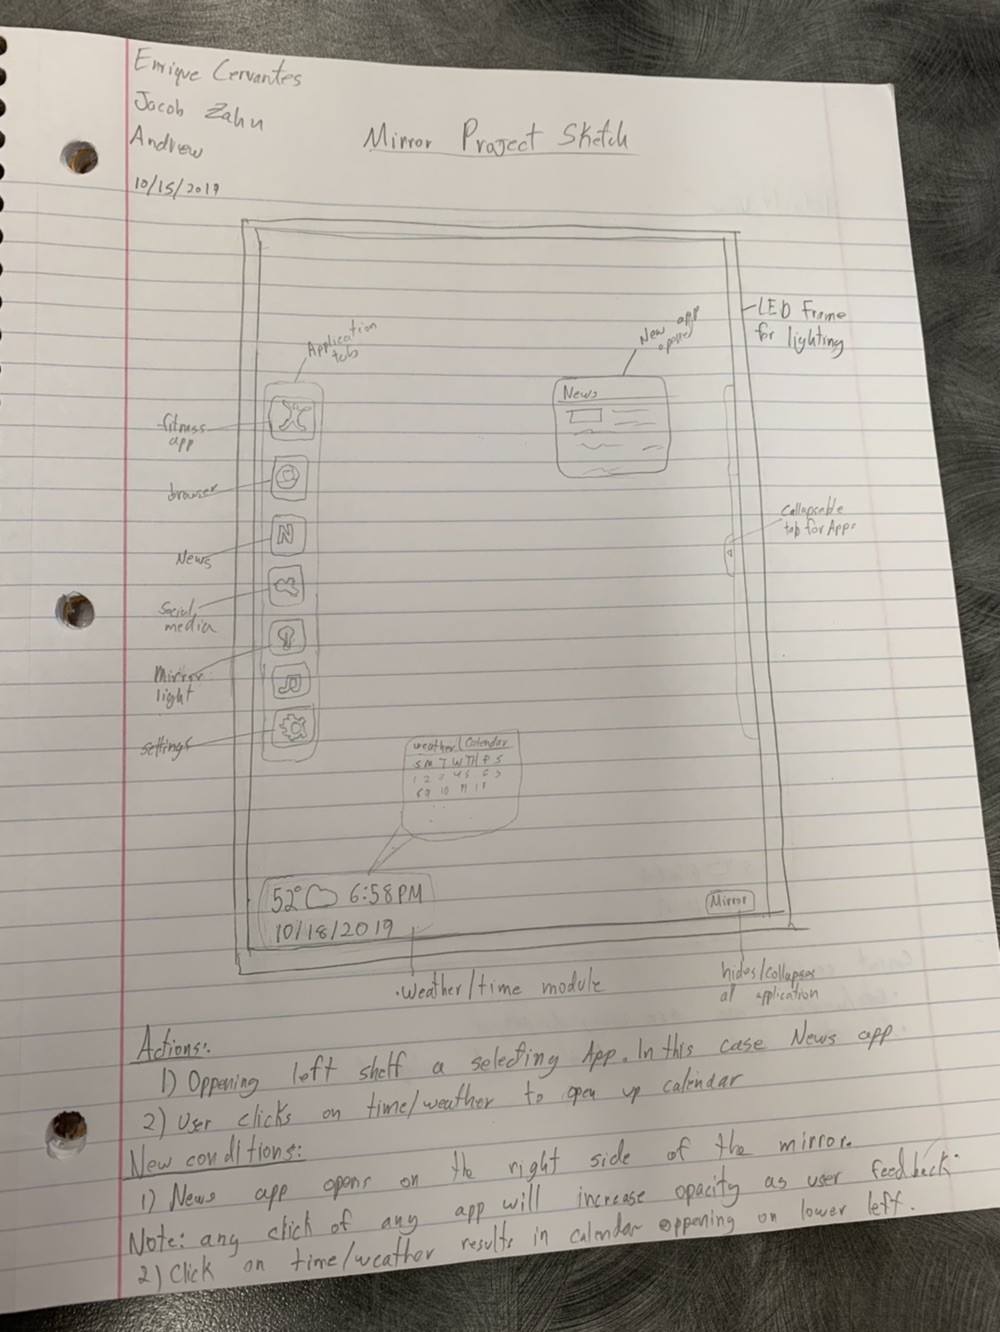 Enrique Cervantes
Jacob Zahn
Andrew
10/15/2019
Mirror Project Sketch
LED Frame
for lighting
Application
tab
New app
opened
News
fitness
app
browser
News
N
Social
media
Mirror
light
settings
Collapsable
tab for Apps
weather Calendar
S M T W TH F S
52° 6:58PM
10/18/2019
Mirror
weather/time module
hides/collapses
all application
Actions:
1) Oppening left shelf a selecting App. In this case News app
2) User clicks on time/weather to open up calendar
New conditions:
1) News app opens on the right side of the mirror.
Note: any click of any app will increase opacity as user feedback.
2) Click on time/weather results in calendar oppening on lower left.